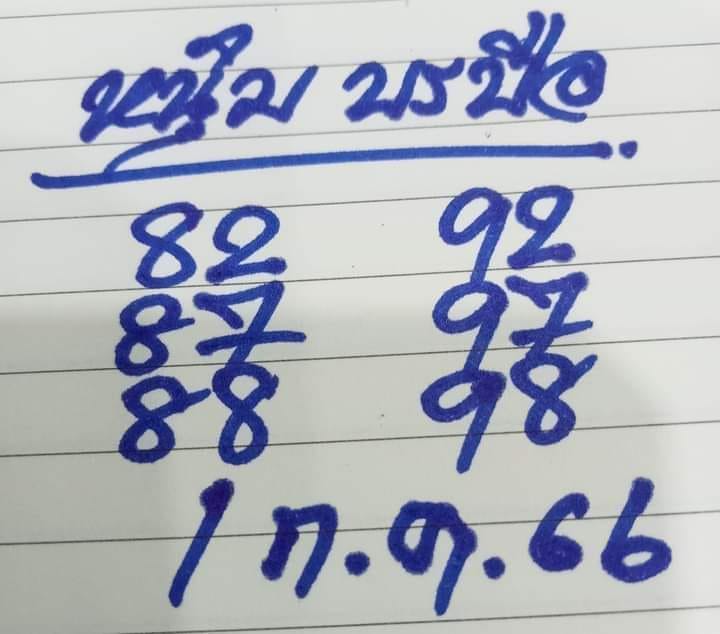 หนุ่ม บรบือ
82 92
87 97
88 98
1 ก.ค.66